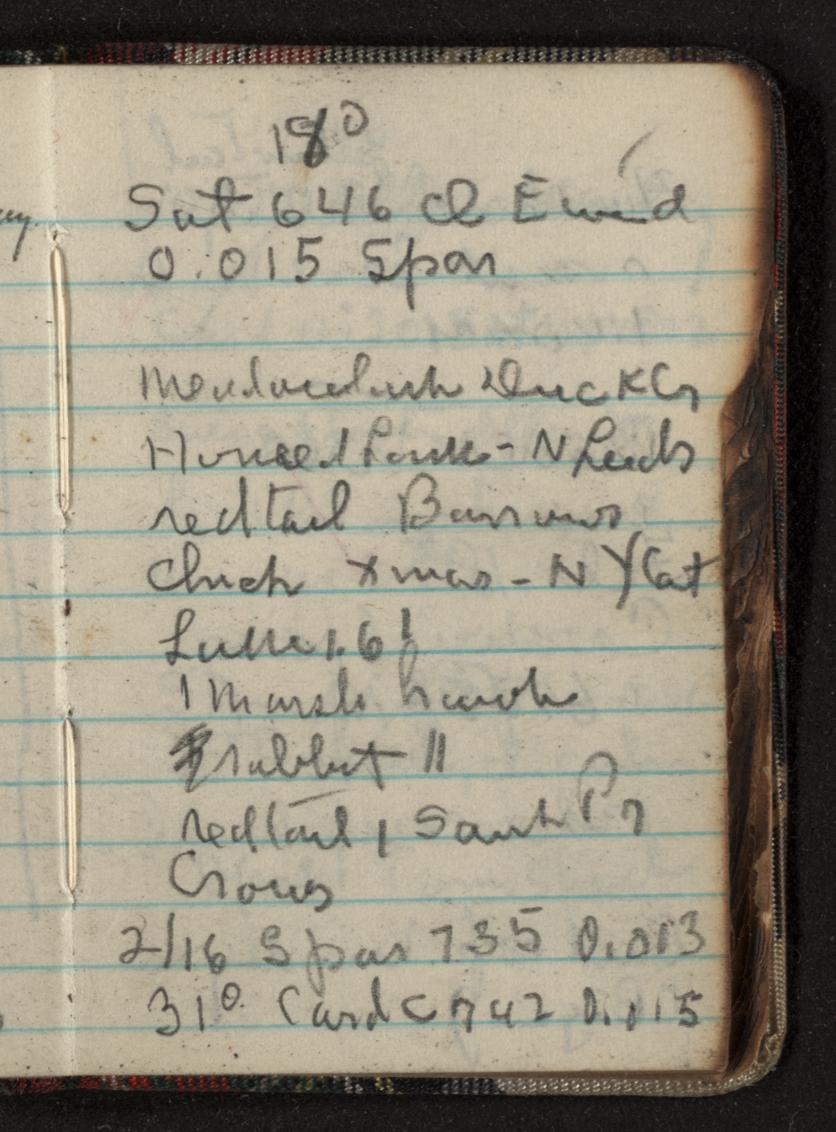 18°
Sat 646 Cl E wind
0.015 Spar
Meadowlark Duck Cg
Horned Larks - N Leeds
redtail Barrows
Chick Xmas - N Y Cat
1 Marsh hawk
rabbit 11
redtail 1 Sauk P
Crows
2/16 Spar 735 0.013
31° Card C 742 0.015